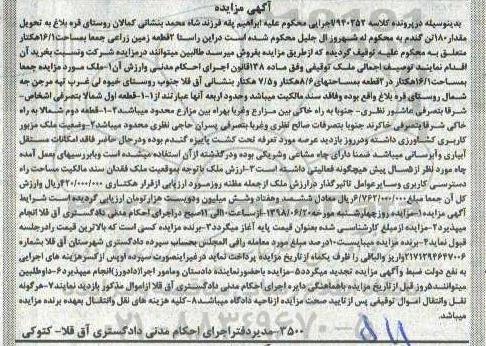 آگهی مزایده
بدینوسیله درپرونده کلاسه ۹۴۰۲۵۲اجرایی محکوم علیه ابراهیم پقه فرزند شاه محمد بنشانی کمالان روستای قره بلاغ به تحویل
مقدار۱۸۰تن گندم به محکوم له شهروز ال جلیل محکوم شده است دراین راستا ۲قطعه زمین زراعی جمعا بمساحت۱۶/۱هکتار
متعلق به محکوم علیه توقیف گردیده که ازطریق مزایده بفروش میرسد طالبین میتوانند درمزایده شرکت ونست بخرید آن
اقدام نمایند توصیف اجمالی ملک توقیفی وفق ماده ۱۳۸قانون اجرای احکام مدنی وارزش آن۱-ملک مورد مزایده جمعا
بمساحت۱۶/۱هکتار در۲قطعه بمساحتهای۸/۶هکتار و۷/۵ هکتار بنشانی آق قلا جنوب روستای خیوه لی غرب تپه مرجن جه
شمال روستای قره بلاغ واقع بوده وفاقد سند مالکیت میباشد وحدود اربعه آنها عبارتند از۱-قطعه اول شمالا بتصرفی اشخاص-
شرقا بتصرفی عاشور نظری- جنوبا به راه خاکی بین مزارع وغربا بهراه بین مزارع محدود میباشد۲-قطعه دوم شمالا به راه
خاکی شرقا بتصرفی خاکرند جنوبا بتصرفات صالح نظری وغربا بتصرفی پسران حاجی نظری محدود میباشد۲-وضعیت ملک مزبور
کاربری کشاورزی داشته ودرروز بازدید عرصه مورد تعرفه تحت کشت پاییزه گندم بوده ودرحال حاضر فاقد امکانات مستقل
آبیاری وآبرسانی میباشد ضمنا دارای چاه مشاعی وشریکی بوده ودرگذشته ازآن استفاده میشده است وبابررسیهای بعمل آمده
چاه مورد نظر از۵سال پیش هیچگونه فعالیتی داشته است۳-ارزش ملک باتوجه بموقعیت ملک فقدان سند مالکیت مساحت راه
دسترسی کاربری وسایرعوامل تاثیرگذار درارزش ملک ازجمله مظنه روزمورد ارزیابی ازقرار هکتاری ۴۲۰/۰۰۰/۰۰۰ریال وارزش
کل آن جمعا مبلغ۶/۷۶۲/۰۰۰/۰۰۰ریال معادل ششصد وهفتاد وشش میلیون ودویست هزارتومان ارزیابی گردیده است شرایط
آگهی مزایده۱-مزایده روزچهارشنبه مورخه ۱۳۹۸/۰۶/۲۰ازساعت۱۰الی ۱۱صبح دراجرای احکام مدنی دادگستری آق قلا انجام
میپذیرد۲-مزایده از مبلغ کارشناسی شده بعنوان قیمت پایه آغاز میگردد۳-برنده مزایده کسی است که بالاترین قیمت رادرجلسه
قبول نماید۴-برنده مزایده میبایست۱۰درصد مبلغ مورد معامله رافی المجلس بحساب سپرده دادگستری شهرستان آق قلا بشماره
۲۱۷۱۲۹۴۶۴۷۰۰۶واریز والباقی را ظرف یکماه ازتاریخ مزایده پرداخت نماید درغیراینصورت سپرده اوپس ازکسرهزینه های اجرایی
به نفع دولت ضبط وآگهی مزایده تجدید میگردد۵-مزایده باحضورنماینده دادستان ومامور اجرا(دادورز)انجام میپذیرد۶-داوطلبین
میتوانند۵روز قبل از تاریخ مزایده باهماهنگی دایره اجرای احکام مدنی دادگستری آق قلا ازاموال مذکور بازدید نمایند۷-هرگونه
نقل وانتقال اموال توقیفی پس از تایید صحت مزایده ازناحیه دادگاه میباشد۸-کلیه هزینه های نقل وانتقال بعهده برنده مزایده
میباشد.
۳۵۰۰-مدیردفتراجرای احکام مدنی دادگستری آق قلا- کتوکی